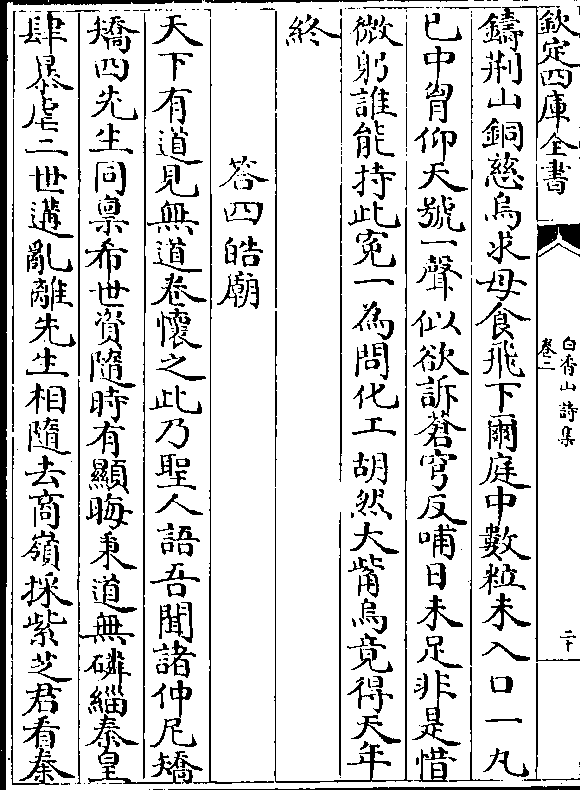 欽定四庫全書
白香山詩集
卷二
二十
鑄荆山銅慈烏求母食飛下爾庭中數粒未入口一丸
已中胷仰天號一聲似欲訴蒼穹反哺日未足非是惜
微躬誰能持此寃一為問化工胡然大觜烏竟得天年
終
答四皓廟
天下有道見無道卷懷之此乃聖人語吾聞諸仲尼矯
矯四先生同稟希世資隨時有顯晦秉道無磷緇秦皇
肆暴虐二世遘亂離先生相隨去商嶺採紫芝君看秦